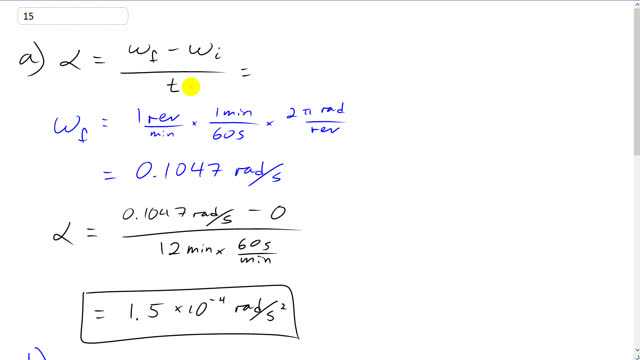 15
a) α = (ω_f − ω_i) / t =
ω_f = 1 rev/min × 1 min/60s × 2π rad/rev
= 0.1047 rad/s
α = (0.1047 rad/s − 0) / (12 min × 60s/min)
= 1.5 × 10⁻⁴ rad/s²